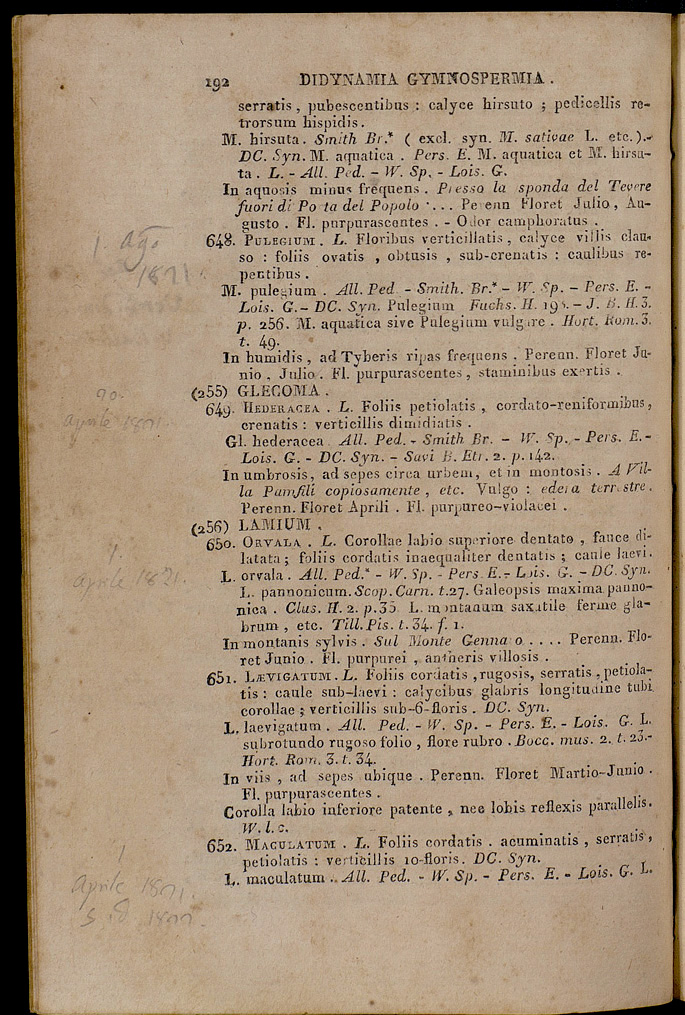 192 DIDYNAMIA GYMNOSPERMIA .
serratis , pubescentibus : calyce hirsuto ; pedicellis re-
trorsum hispidis .
M. hirsuta . Smith Br.* ( excl. syn. M. sativae L. etc. ).-
DC. Syn. M. aquatica . Pers. E. M. aquatica et M. hirsu-
ta . L. - All. Ped. - W. Sp. - Lois. G.
In aquosis minus frequens . Presso la sponda del Tevere
fuori di Porta del Popolo . . . . Perenn Floret Julio , Au-
gusto . Fl. purpurascentes . - Odor camphoratus .
1. Ago
1821
648. PULEGIUM . L. Floribus verticillatis , calyce villis clau-
so : foliis ovatis , obtusis , sub-crenatis : caulibus re-
pentibus .
M. pulegium . All. Ped. - Smith. Br.* - W. Sp. - Pers. E. -
Lois. G. - DC. Syn. Pulegium Fuchs. H. - J. B. H. 3.
p. 256. M. aquatica sive Pulegium vulgare . Hort. Rom. 3.
t. 49.
In humidis , ad Tyberis ripas frequens . Perenn. Floret Ju-
nio , Julio . Fl. purpurascentes , staminibus exertis .
(255) GLECOMA .
20.
aprile 1821.
649. HEDERACEA . L. Foliis petiolatis , cordato-reniformibus,
crenatis : verticillis dimidiatis .
Gl. hederacea All. Ped. - Smith Br. - W. Sp. - Pers. E. -
Lois. G. - DC. Syn. - Savi B. Etr. 2. p. 142.
In umbrosis, ad sepes circa urbem, et in montosis . A Vil-
la Pamfili copiosamente , etc. Vulgo : edera terrestre .
Perenn. Floret Aprili . Fl. purpureo-violacei .
(256) LAMIUM .
aprile 1821.
650. ORVALA . L. Corollae labio superiore dentato , fauce di-
latata ; foliis cordatis inaequaliter dentatis ; caule laevi.
L. orvala . All. Ped.* - W. Sp. - Pers. E. - Lois. G. - DC. Syn.
L. pannonicum. Scop. Carn. t.27. Galeopsis maxima panno-
nica . Clus. H. 2. p. 36 L. montanum saxatile ferme gla-
brum , etc. Till. Pis. t. 34. f. 1.
In montanis sylvis . Sul Monte Gennaro . . . . Perenn. Flo-
ret Junio . Fl. purpurei , antheris villosis .
651. LÆVIGATUM . L. Foliis cordatis , rugosis, serratis , petiola-
tis : caule sub-laevi : calycibus glabris longitudine tubi
corollae ; verticillis sub-6-floris . DC. Syn.
L. laevigatum . All. Ped. - W. Sp. - Pers. E. - Lois. G. L.
subrotundo rugoso folio , flore rubro . Bocc. mus. 2. t. 23.-
Hort. Rom. 3. t. 34.
In viis , ad sepes ubique . Perenn. Floret Martio-Junio .
Fl. purpurascentes .
Corolla labio inferiore patente , nec lobis reflexis parallelis.
W. l. c.
1
Aprile 1821.
652. MACULATUM . L. Foliis cordatis . acuminatis , serratis ,
petiolatis : verticillis 10-floris. DC. Syn.
L. maculatum . All. Ped. - W. Sp. - Pers. E. - Lois. G. L.